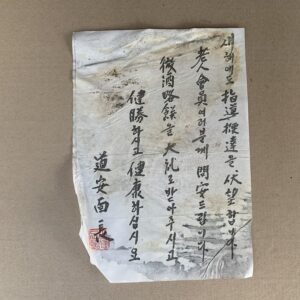 새해에도 指導鞭達을 伏望합니다.
老人會員여러분께 問安드립니다.
微酒略饌을 大禮로 받아주시고
健勝하시고 健康하십시요
道安面長